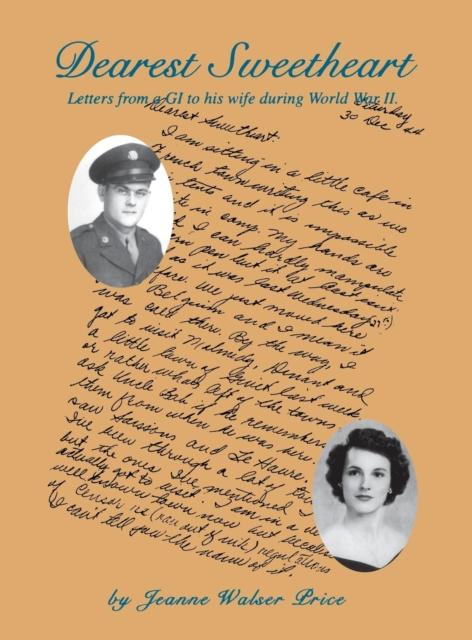 Dearest Sweetheart
Letters from a GI to his wife during World War II.
Saturday
30 Dec
Dearest Sweetheart:
I am sitting in a little cafe in
French town writing this as we
tents and it is impossible
in camp. My hands are
I can hardly manipulate
pen but it at least isn't
as it was last Wednesday
. We just moved here
Belgium and I mean it
was cold there. By the way, I
got to visit Malmedy, Dinant and
a little town of Givet last week
or rather whats left of the towns
ask Uncle if he remembers
them from when he was here
saw Soissons and Le Havre
I've been through a lot of
but the ones I've mentioned I
actually got to visit. I am in a
well known town now but because
of censor (ran out of ink) regulations
I can't tell you the name of it.
by Jeanne Walser Price